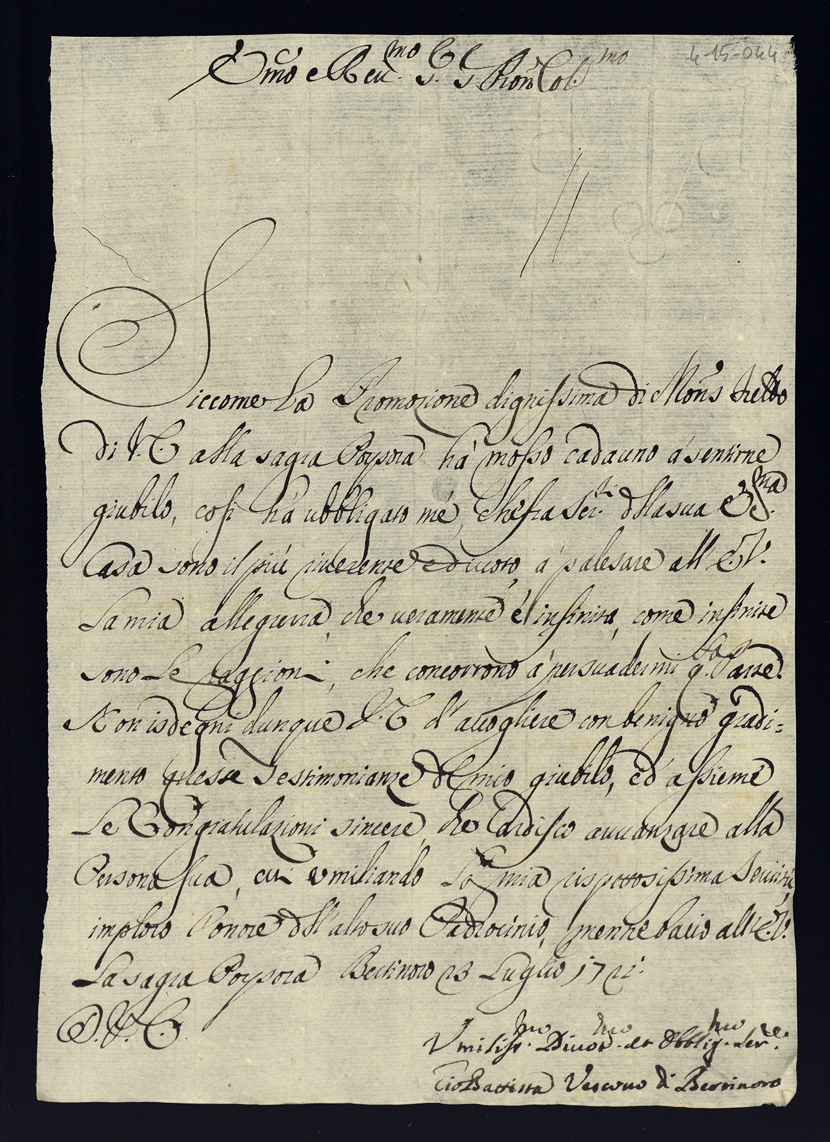 4-15-044
Emo e Reumo Sr Sr Pron Colmo
Siccome la Promozione dignissima di Mons fretto
di V. E. alla sagra Porpora hà mosso cadauno à sentirne
giubilo, così hà ubbligato mé, che frà Seri della sua
Casa sono il più riverente e divoto à palesare all' E. V.
la mia allegrezza, che veramente é infinita, come infinite
sono le raggioni, che concorrono à persuadermi q.ta Parte.
Non isdegni dunque V. E. d'accogliere con benigno gradi=
mento queste testimonianze del mio giubilo, ed' assieme
le Congratulazioni sincere, che ardisco auuanzare alla
Persona sua, cui umiliando la mia rispettosissima seruitù,
imploro l'onore dell'alto suo Padrocinio, mentre bacio all'E. V.
la sagra Porpora Bertinoro 23 Luglio
D. V. E.
Umilissmo Diuotmo et Obbligmo Serre
Gio Battista Vescouo di Bertinoro